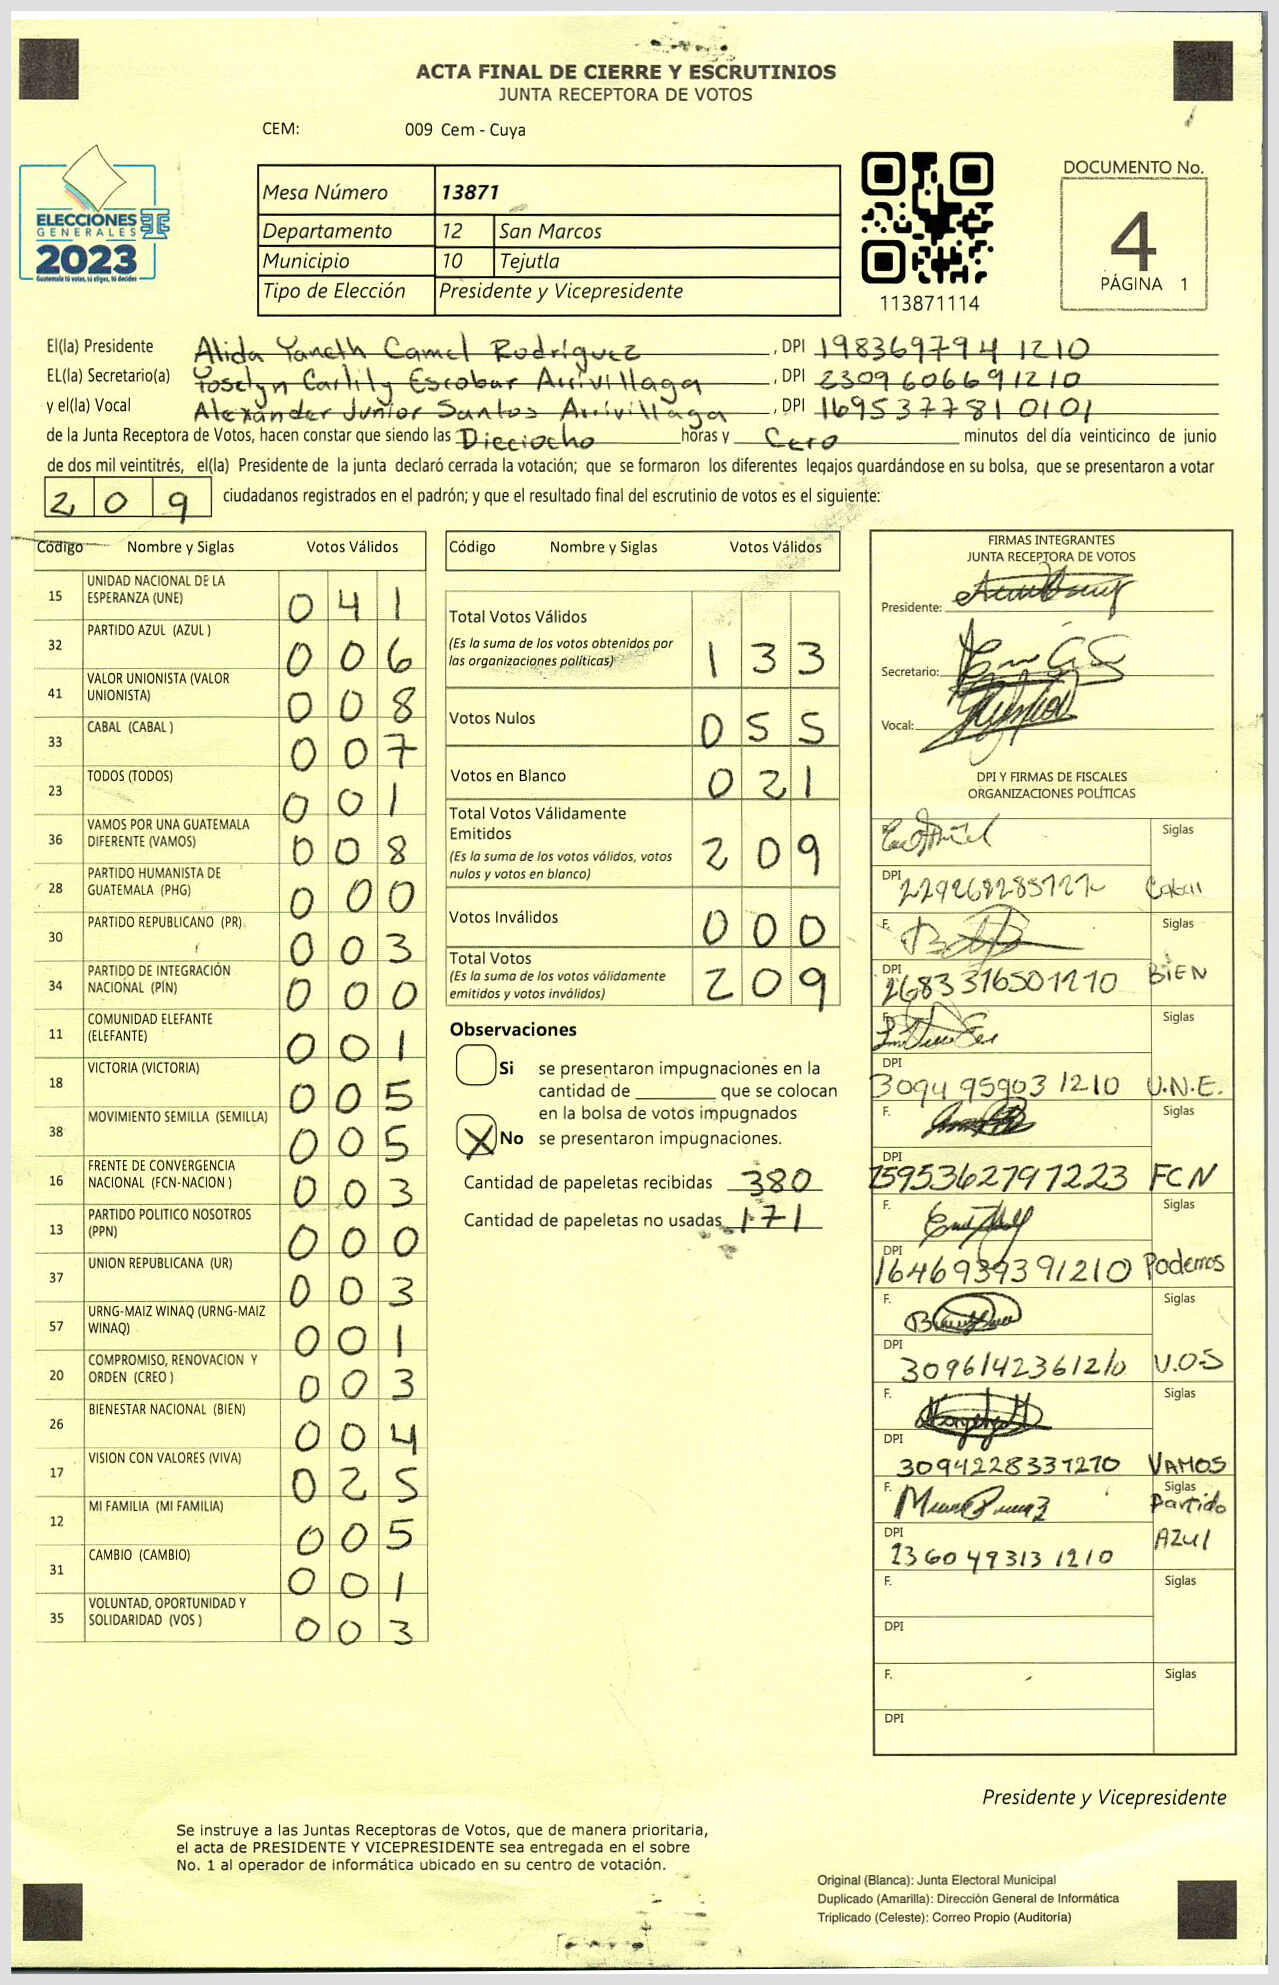 ACTA FINAL DE CIERRE Y ESCRUTINIOS
JUNTA RECEPTORA DE VOTOS
CEM: 009 Cem - Cuya
ELECCIONES
GENERALES
2023
Guatemala tú votas, tú eliges, tú decides
Mesa Número 13871
Departamento 12 San Marcos
Municipio 10 Tejutla
Tipo de Elección Presidente y Vicepresidente
113871114
DOCUMENTO No.
4
PÁGINA 1
El(la) Presidente Alida Yaneth Camel Rodríguez, DPI 198369794 1210
EL(la) Secretario(a) Yoselyn Carlily Escobar Arrivillaga, DPI 2309606691210
y el(la) Vocal Alexander Junior Santos Arrivillaga, DPI 1695377810101
de la Junta Receptora de Votos, hacen constar que siendo las Dieciocho horas y Cero minutos del día veinticinco de junio
de dos mil veintitrés, el(la) Presidente de la junta declaró cerrada la votación; que se formaron los diferentes legajos guardándose en su bolsa, que se presentaron a votar
209 ciudadanos registrados en el padrón; y que el resultado final del escrutinio de votos es el siguiente:
Código Nombre y Siglas Votos Válidos
15 UNIDAD NACIONAL DE LA ESPERANZA (UNE) 041
32 PARTIDO AZUL (AZUL ) 006
41 VALOR UNIONISTA (VALOR UNIONISTA) 008
33 CABAL (CABAL ) 007
23 TODOS (TODOS) 001
36 VAMOS POR UNA GUATEMALA DIFERENTE (VAMOS) 008
28 PARTIDO HUMANISTA DE GUATEMALA (PHG) 000
30 PARTIDO REPUBLICANO (PR) 003
34 PARTIDO DE INTEGRACIÓN NACIONAL (PIN) 000
11 COMUNIDAD ELEFANTE (ELEFANTE) 001
18 VICTORIA (VICTORIA) 005
38 MOVIMIENTO SEMILLA (SEMILLA) 005
16 FRENTE DE CONVERGENCIA NACIONAL (FCN-NACION ) 003
13 PARTIDO POLITICO NOSOTROS (PPN) 000
37 UNION REPUBLICANA (UR) 003
57 URNG-MAIZ WINAQ (URNG-MAIZ WINAQ) 001
20 COMPROMISO, RENOVACION Y ORDEN (CREO ) 003
26 BIENESTAR NACIONAL (BIEN) 004
17 VISION CON VALORES (VIVA) 025
12 MI FAMILIA (MI FAMILIA) 005
31 CAMBIO (CAMBIO) 001
35 VOLUNTAD, OPORTUNIDAD Y SOLIDARIDAD (VOS ) 003
Código Nombre y Siglas Votos Válidos
Total Votos Válidos 133
(Es la suma de los votos obtenidos por
las organizaciones políticas)
Votos Nulos 055
Votos en Blanco 021
Total Votos Válidamente
Emitidos 209
(Es la suma de los votos válidos, votos
nulos y votos en blanco)
Votos Inválidos 000
Total Votos 209
(Es la suma de los votos válidamente
emitidos y votos inválidos)
Observaciones
Si se presentaron impugnaciones en la
cantidad de ________ que se colocan
en la bolsa de votos impugnados
X No se presentaron impugnaciones.
Cantidad de papeletas recibidas 380
Cantidad de papeletas no usadas 171
FIRMAS INTEGRANTES
JUNTA RECEPTORA DE VOTOS
Presidente:
Secretario:
Vocal:
DPI Y FIRMAS DE FISCALES
ORGANIZACIONES POLÍTICAS
F. Siglas
DPI Cabal
F. Siglas
DPI 2683316501210 BIEN
F. Siglas
DPI 3094959031210 U.N.E.
F. Siglas
DPI 2595362791223 FCN
F. Siglas
DPI 1646939391210 Podemos
F. Siglas
DPI 3096142361210 V.O.S
F. Siglas
DPI 3094228331210 VAMOS
F. Siglas
Partido
DPI 2360493131210 AZUl
F. Siglas
DPI
F. Siglas
DPI
Presidente y Vicepresidente
Se instruye a las Juntas Receptoras de Votos, que de manera prioritaria,
el acta de PRESIDENTE Y VICEPRESIDENTE sea entregada en el sobre
No. 1 al operador de informática ubicado en su centro de votación.
Original (Blanca): Junta Electoral Municipal
Duplicado (Amarilla): Dirección General de Informática
Triplicado (Celeste): Correo Propio (Auditoría)